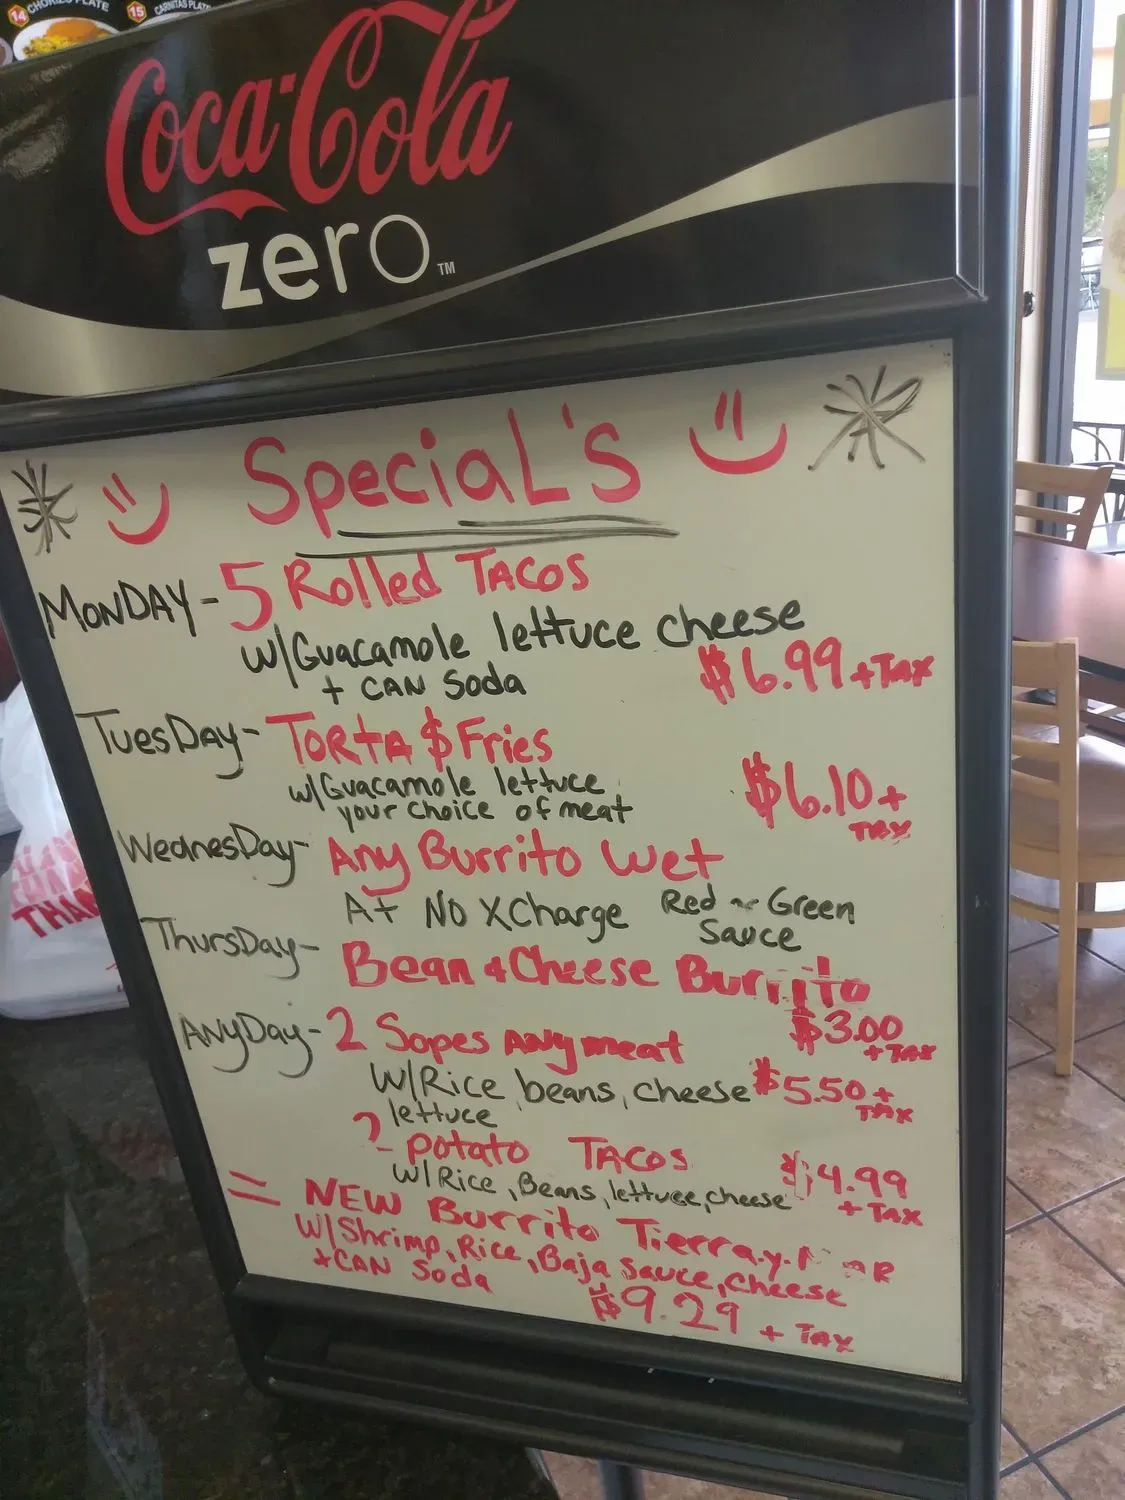 14 CHORIES PLATE
15 CARNITAS PLATE
Coca-Cola
zero™
SpeciaL'S
MONDAY - 5 Rolled TACOS
W/Guacamole lettuce cheese
+ CAN Soda $6.99 + TAX
TuesDAY - TORTA $ Fries
W/Guacamole lettuce
your choice of meat $6.10 + TAX
WednesDay - Any Burrito Wet
At NO XCharge Red ~ Green
Sauce
ThursDay - Bean & Cheese Burrito
$3.00 + TAX
ANyDay - 2 Sopes ANy meat
W/Rice, beans, cheese $5.50 + TAX
lettuce
2 potato TACOS $4.99
W/Rice, Beans, lettuce, cheese + TAX
= NEW Burrito Tierra.y.
W/Shrimp, Rice, Baja sauce, cheese
+ CAN Soda
$9.29 + TAX
THAN